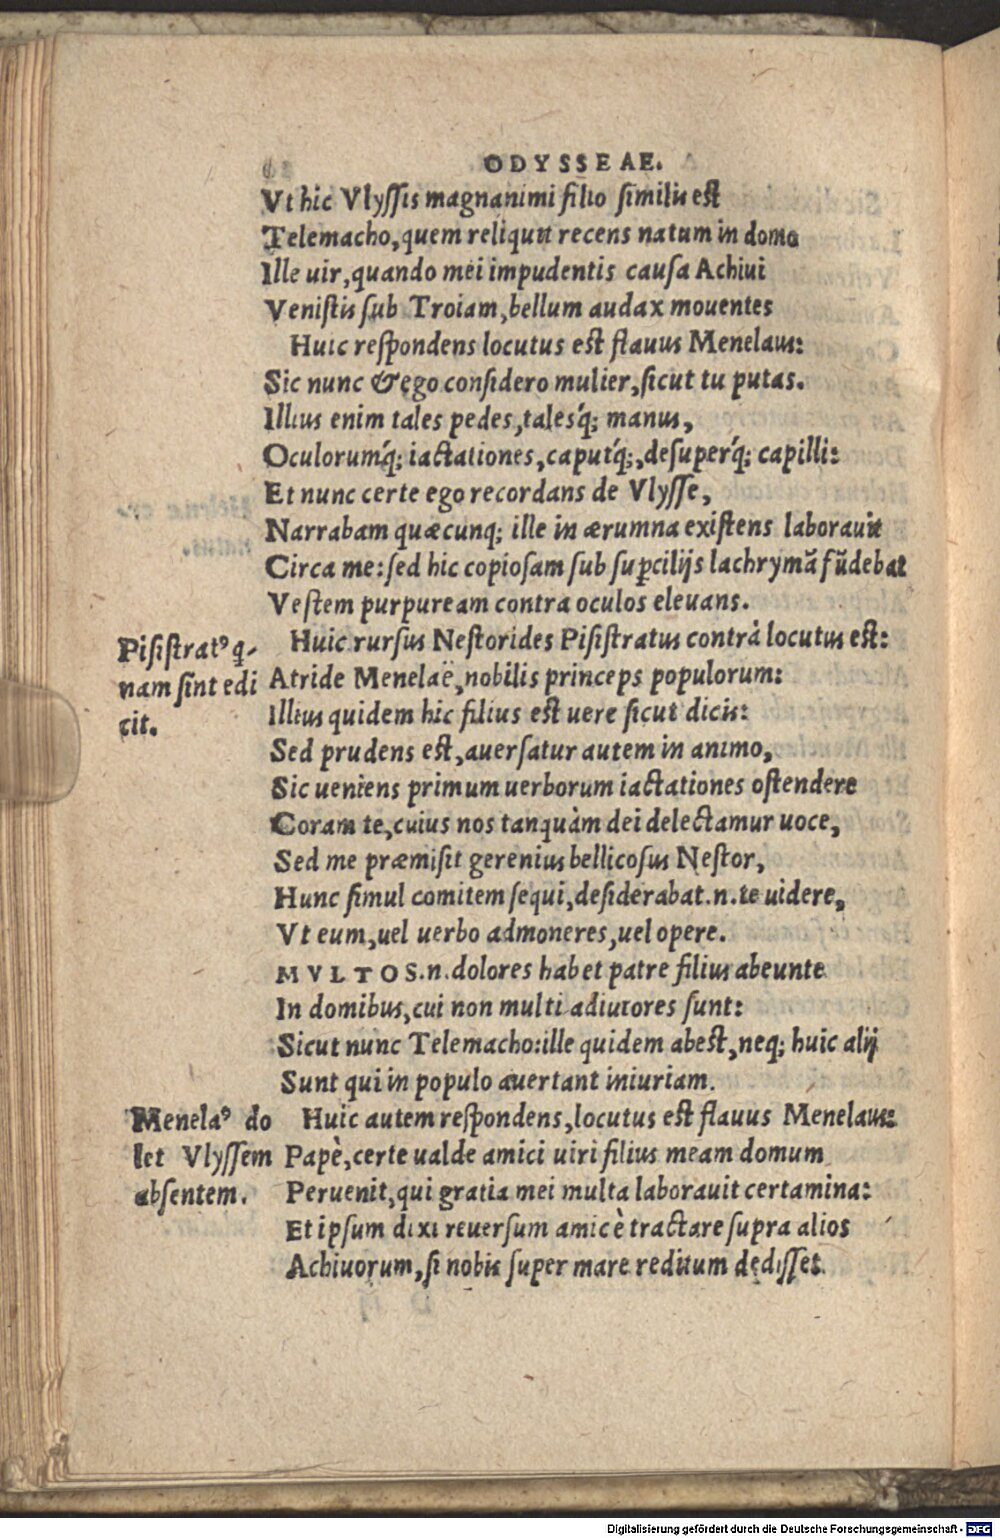 ODYSSEAE.
Vt hic Vlyſſis magnanimi filio ſimilis eſt
Telemacho, quem reliquit recens natum in domo
Ille uir, quando mei impudentis cauſa Achiui
Veniſtis ſub Troiam, bellum audax mouentes
Huic reſpondens locutus eſt flauus Menelaus:
Sic nunc & ego conſidero mulier, ſicut tu putas.
Illius enim tales pedes, taleśq; manus,
Oculorumq́; iactationes, caputq́;, deſuperq́; capilli:
Et nunc certe ego recordans de Vlyſſe,
Narrabam quæcunq; ille in ærumna exiſtens laborauit
Circa me: ſed hic copioſam ſub suꝑcilijs lachrymā fūdebat
Veſtem purpuream contra oculos eleuans.
Piſiſtratꝰ q-
nam ſint edi
cit.
Huic rurſus Neſtorides Piſiſtratus contrà locutus eſt:
Atride Menelaë, nobilis princeps populorum:
Illius quidem hic filius eſt uere ſicut dicis:
Sed prudens eſt, auerſatur autem in animo,
Sic ueniens primum uerborum iactationes oſtendere
Coram te, cuius nos tanquàm dei delectamur uoce,
Sed me præmiſit gerenius bellicoſus Neſtor,
Hunc ſimul comitem ſequi, deſiderabat.n.te uidere,
Vt eum, uel uerbo admoneres, uel opere.
MVLTOS.n.dolores habet patre filius abeunte
In domibus, cui non multi adiutores ſunt:
Sicut nunc Telemacho: ille quidem abeſt, neq; huic alij
Sunt qui in populo auertant iniuriam.
Menelaꝰ do
let Vlyſſem
abſentem.
Huic autem reſpondens, locutus eſt flauus Menelaus:
Papè, certe ualde amici uiri filius meam domum
Peruenit, qui gratia mei multa laborauit certamina:
Et ipſum dixi reuerſum amicè tractare ſupra alios
Achiuorum, ſi nobis ſuper mare reditum dediſſet
Digitalisierung gefördert durch die Deutsche Forschungsgemeinschaft - DFG